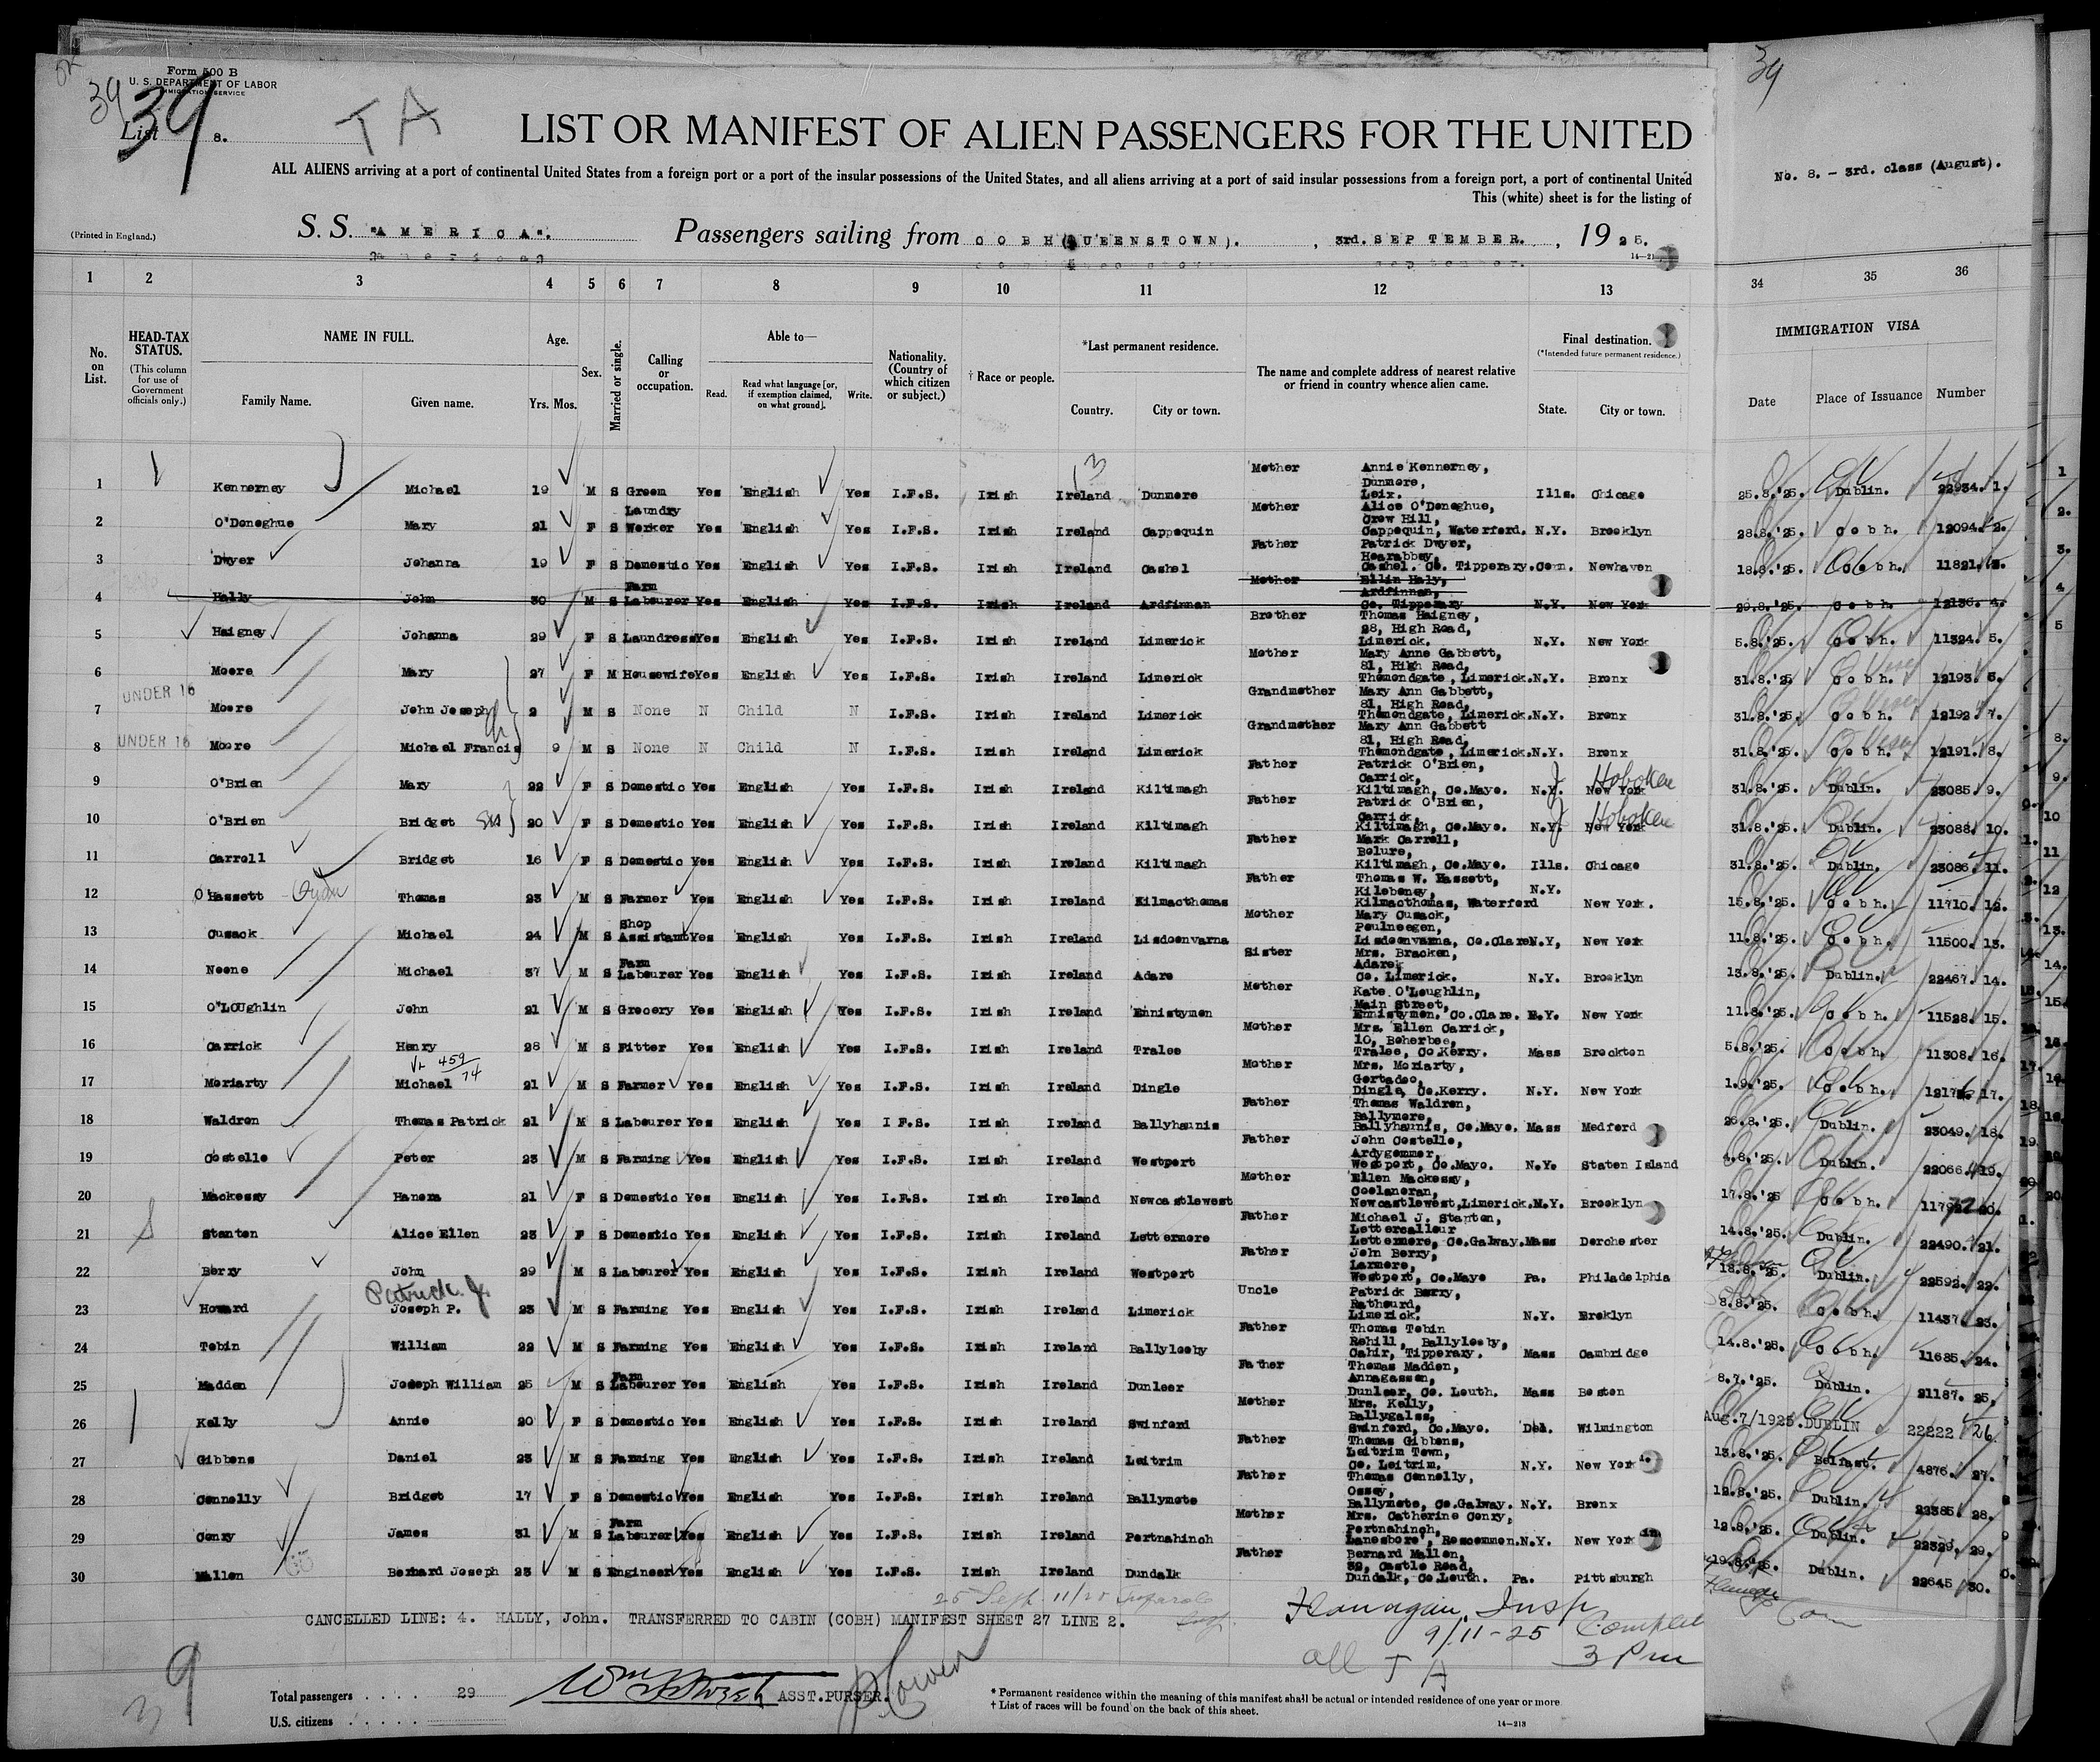 39
Form 500 B
U. S. DEPARTMENT OF LABOR
IMMIGRATION SERVICE
39
39
List 8.
TA
LIST OR MANIFEST OF ALIEN PASSENGERS FOR THE UNITED
No. 8. - 3rd. class (August).
ALL ALIENS arriving at a port of continental United States from a foreign port or a port of the insular possessions of the United States, and all aliens arriving at a port of said insular possessions from a foreign port, a port of continental United
This (white) sheet is for the listing of
(Printed in England.)
S. S. "AMERICA". Passengers sailing from COBH (QUEENSTOWN). , 3rd. SEPTEMBER. , 1925.
1 2 3 4 5 6 7 8 9 10 11 12 13 34 35 36
No. on List.
HEAD-TAX STATUS.
(This column for use of Government officials only.)
NAME IN FULL.
Family Name. Given name.
Age.
Yrs. Mos.
Sex.
Married or single.
Calling or occupation.
Able to—
Read. Read what language [or, if exemption claimed, on what ground]. Write.
Nationality. (Country of which citizen or subject.)
† Race or people.
*Last permanent residence.
Country. City or town.
The name and complete address of nearest relative or friend in country whence alien came.
Final destination.
(*Intended future permanent residence.)
State. City or town.
IMMIGRATION VISA
Date Place of Issuance Number
1 Kennerney Michael 19 M S Groom Yes English Yes I.F.S. Irish Ireland Dunmore Mother Annie Kennerney, Dunmore, Leix. Ills. Chicago 25.8.'25. Dublin. 22934. 1.
2 O'Donoghue Mary 21 F S Laundry Worker Yes English Yes I.F.S. Irish Ireland Cappoquin Mother Alice O'Donoghue, Crow Hill, Cappoquin, Waterford. N.Y. Brooklyn 28.8.'25. Cobh. 12094. 2.
3 Dwyer Johanna 19 F S Domestic Yes English Yes I.F.S. Irish Ireland Cashel Father Patrick Dwyer, Hoarabbey, Cashel. Co. Tipperary. Conn. Newhaven 18.8.'25. Cobh. 11821. 3.
4 Hally John 30 M S Farm Labourer Yes English Yes I.F.S. Irish Ireland Ardfinnan Mother Ellin Haly, Ardfinnan, Co. Tipperary N.Y. New York 29.8.'25. Cobh. 12136. 4.
5 Haigney Johanna 29 F S Laundress Yes English Yes I.F.S. Irish Ireland Limerick Brother Thomas Haigney, 28, High Road, Limerick. N.Y. New York 5.8.'25. Cobh. 11324. 5.
6 Moore Mary 27 F M Housewife Yes English Yes I.F.S. Irish Ireland Limerick Mother Mary Anne Gabbett, 81, High Road, Thomondgate, Limerick. N.Y. Bronx 31.8.'25 Cobh. 12193. 6.
UNDER 16
7 Moore John Joseph 2 M S None N Child N I.F.S. Irish Ireland Limerick Grandmother Mary Ann Gabbett, 81, High Road, Thomondgate, Limerick. N.Y. Bronx 31.8.'25. Cobh. 12192. 7.
UNDER 16
8 Moore Michael Francis 9 M S None N Child N I.F.S. Irish Ireland Limerick Grandmother Mary Ann Gabbett 81, High Road, Thomondgate, Limerick. N.Y. Bronx 31.8.'25. Cobh. 12191. 8.
9 O'Brien Mary 22 F S Domestic Yes English Yes I.F.S. Irish Ireland Kiltimagh Father Patrick O'Brien, Carrick, Kiltimagh, Co.Mayo. N.Y. J New York Hoboken 31.8.'25. Dublin. 23085. 9.
10 O'Brien Bridget Sis 20 F S Domestic Yes English Yes I.F.S. Irish Ireland Kiltimagh Father Patrick O'Brien, Carrick, Kiltimagh, Co.Mayo. N.Y. J New York Hoboken 31.8.'25. Dublin. 23088. 10.
11 Carroll Bridget 16 F S Domestic Yes English Yes I.F.S. Irish Ireland Kiltimagh Father Mark Carroll, Bolure, Kiltimagh, Co.Mayo. Ills. Chicago 31.8.'25. Dublin. 23086. 11.
12 O'Hassett Thomas 23 M S Farmer Yes English Yes I.F.S. Irish Ireland Kilmacthomas Father Thomas W. Hassett, Kilebeney, Kilmacthomas, Waterford N.Y. New York. 15.8.'25. Cobh. 11710. 12.
13 Cusack Michael 24 M S Shop Assistant Yes English Yes I.F.S. Irish Ireland Lisdoonvarna Mother Mary Cusack, Poulneegen, Lisdoonvarna, Co.Clare N.Y, New York 11.8.'25. Cobh. 11500. 13.
14 Noone Michael 37 M S Farm Labourer Yes English Yes I.F.S. Irish Ireland Adare Sister Mrs. Bracken, Adare, Co. Limerick. N.Y. Brooklyn 13.8.'25. Dublin. 22467. 14.
15 O'LOughlin John 21 M S Grocery Yes English Yes I.F.S. Irish Ireland Ennistymon Mother Kate O'Loughlin, Main Street, Ennistymon. Co.Clare. N.Y. New York 11.8.'25. Cobh. 11528. 15.
16 Carrick Henry 28 M S Fitter Yes English Yes I.F.S. Irish Ireland Tralee Mother Mrs. Ellen Carrick, 10, Boherbee, Tralee, Co.Kerry. Mass Brockton 5.8.'25. Cobh. 11308. 16.
459/74
17 Moriarty Michael 21 M S Farmer Yes English Yes I.F.S. Irish Ireland Dingle Mother Mrs. Moriarty, Gortadoo, Dingle, Co.Kerry. N.Y. New York 1.9.'25. Cobh. 12176. 17.
18 Waldron Thomas Patrick 21 M S Labourer Yes English Yes I F.S. Irish Ireland Ballyhaunis Father Thomas Waldron, Ballymore, Ballyhaunis, Co.Mayo. Mass Medford 26.8.'25. Dublin. 23049. 18.
19 Costello Peter 23 M S Farming Yes English Yes I.F.S. Irish Ireland Westport Father John Costello, Ardygommor, Westport, Co.Mayo. N.Y. Staten Island 4.8.'25. Dublin. 22066. 19.
20 Mackessy Hanora 21 F S Domestic Yes English Yes I.F.S. Irish Ireland Newcastlewest Mother Ellen Mackessy, Coolanoran, Newcastlewest, Limerick. N.Y. Brooklyn 17.8.'25 Cobh. 11772 20.
21 Stanton Alice Ellen 23 F S Domestic Yes English Yes I.F.S. Irish Ireland Lettermore Father Michael J. Stanton, Lettercallour Lettermore, Co.Galway. Mass Dorchester 14.8.'25. Dublin. 22490. 21.
22 Berry John 29 M S Labourer Yes English Yes I.F.S. Irish Ireland Westport Father John Berry, Larmore, Westport, Co.Mayo Pa. Philadelphia 18.8.'25. Dublin. 22592. 22.
Patrick J.
23 Howard Joseph P. 23 M S Farming Yes English Yes I.F.S. Irish Ireland Limerick Uncle Patrick Berry, Rathourd, Limerick. N.Y. Broklyn 8.8.'25. Cobh. 11437. 23.
24 Tobin William 22 M S Farming Yes English Yes I.F.S. Irish Ireland Ballylooby Father Thomas Tobin Rehill, Ballylooby, Cahir, Tipperary. Mass Cambridge 14.8.'25. Cobh. 11685. 24.
25 Madden Joseph William 25 M S Farm Labourer Yes English Yes I.F.S. Irish Ireland Dunleer Father Thomas Madden, Annagassen, Dunleer, Co. Louth. Mass Boston 8.7.'25. Dublin. 21187. 25,
26 Kelly Annie 20 F S Domestic Yes English Yes I.F.S. Irish Ireland Swinford Mother Mrs. Kelly, Ballygalss, Swinford, Co.Mayo. Del. Wilmington Aug.7/1925. DUBLIN 22222 26
27 Gibbons Daniel 23 M S Farming Yes English Yes I.F.S. Irish Ireland Leitrim Father Thomas Gibbons, Leitrim Town, Co. Leitrim. N.Y. New York 13.8.'25. Belfast. 4876. 27.
28 Connolly Bridget 17 F S Domestic Yes English Yes I.F.S. Irish Ireland Ballymote Father Thomas Connolly, Ossey, Ballymote, Co.Galway. N.Y. Bronx 12.8.'25. Dublin. 22385. 28.
29 Conry James 31 M S Farm Labourer Yes English Yes I.F.S. Irish Ireland Portnahinch Mother Mrs. Catherine Conry, Portnahinch, Lanesboro', Roscommon. N.Y. New York 12.8.'25. Dublin. 22329. 29.
30 Mallon Bernard Joseph 23 M S Engineer Yes English Yes I.F.S. Irish Ireland Dundalk Father Bernard Mallon, 39, Castle Road, Dundalk, Co.Louth. Pa. Pittsburgh 19.8.'25. Dublin. 22645 30.
25 Sept 11/25
CANCELLED LINE: 4. HALLY, John. TRANSFERRED TO CABIN (COBH) MANIFEST SHEET 27 LINE 2.
Flanagan, Insp
9/11-25 Complete
3 Pm
all T A
39
Total passengers . . . . 29
ASST.PURSER.
U.S. citizens . . . . . .
* Permanent residence within the meaning of this manifest shall be actual or intended residence of one year or more.
† List of races will be found on the back of this sheet.
14—213